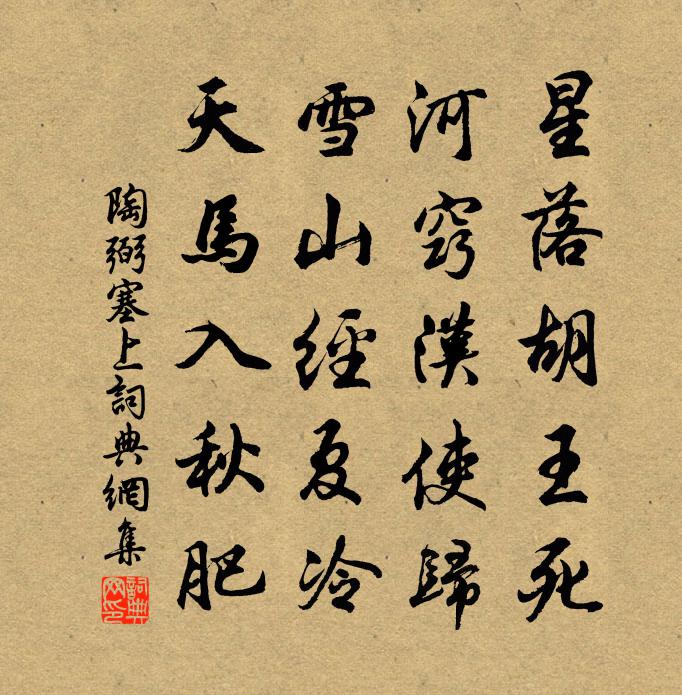 星落胡王死
河窮漢使歸
雪山經夏冷
天馬入秋肥
陶弼塞上詞典網集
詞典网印